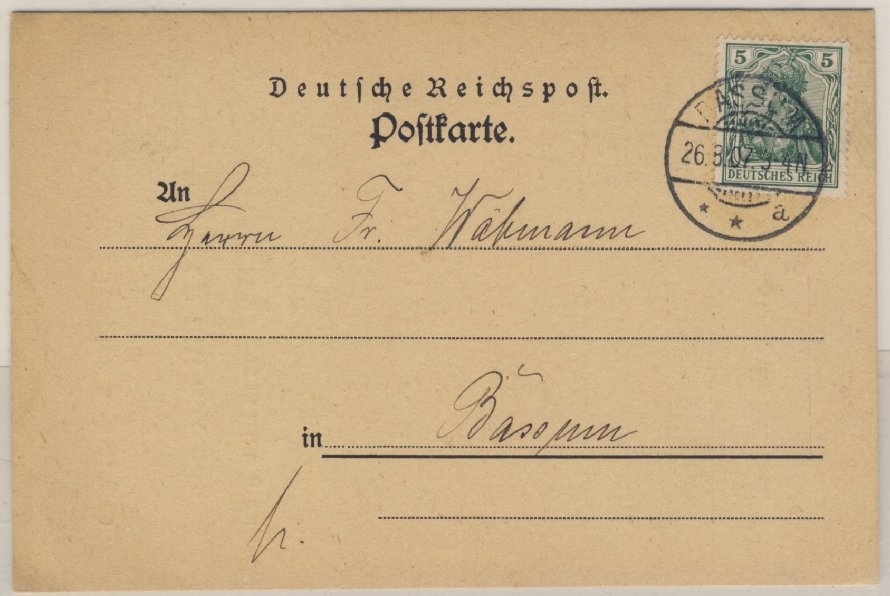 Deutsche Reichspost.
Postkarte.
5 5
DEUTSCHES REICH
BASSUM
26.3.07. 3-4N.
a
An
Herrn Fr. Wäbmann
in Bassum